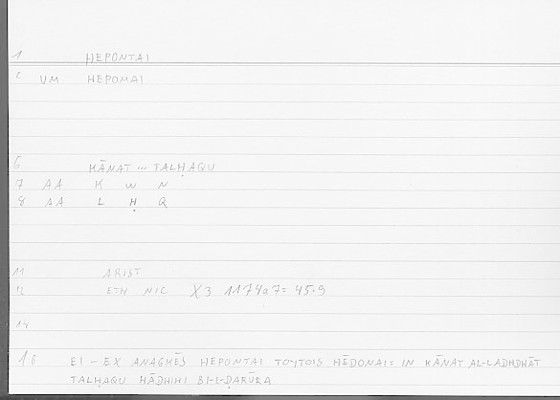 1 HEPONTAI
2 UM HEPOMAI
6 KĀNAT ... TALḤAQU
7 AA K W N
8 AA L Ḥ Q
11 ARIST
12 ETH NIC X3 1174a7= 45.9
14
16 EI - EX ANAGKĒS HEPONTAI TOYTOIS HĒDONAI= IN KĀNAT AL-LADHDHĀT
TALḤAQU HĀDHIHI BI-L-ḌARŪRA